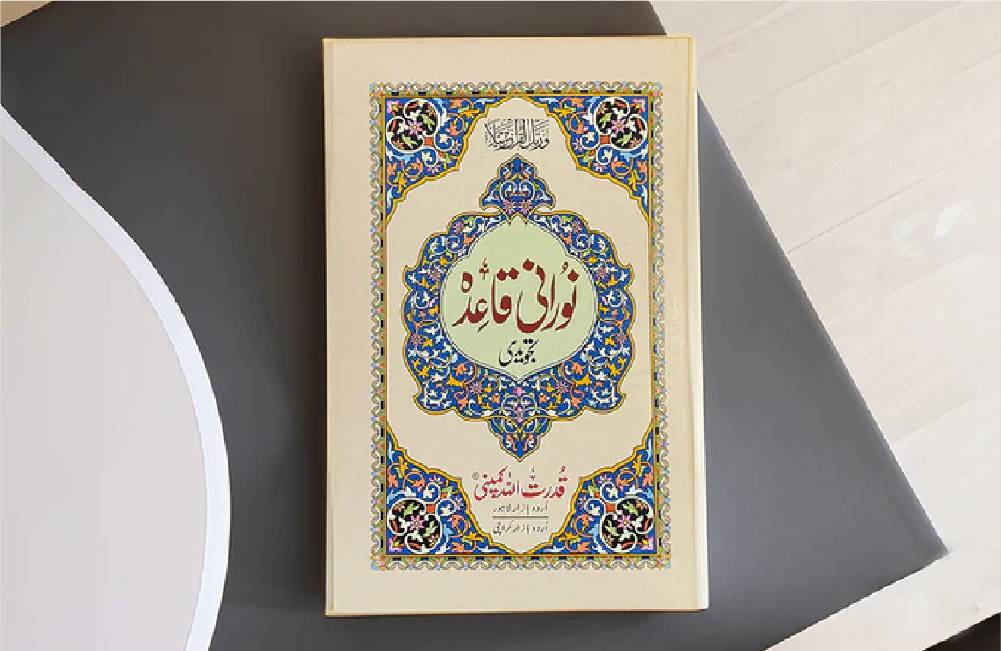 ورتل القرآن ترتيلا
نُورانی قَاعِدہ
تجویدی
قُدرت اللہ کمپنی
اُردو بازار لاہور
اُردو بازار کراچی